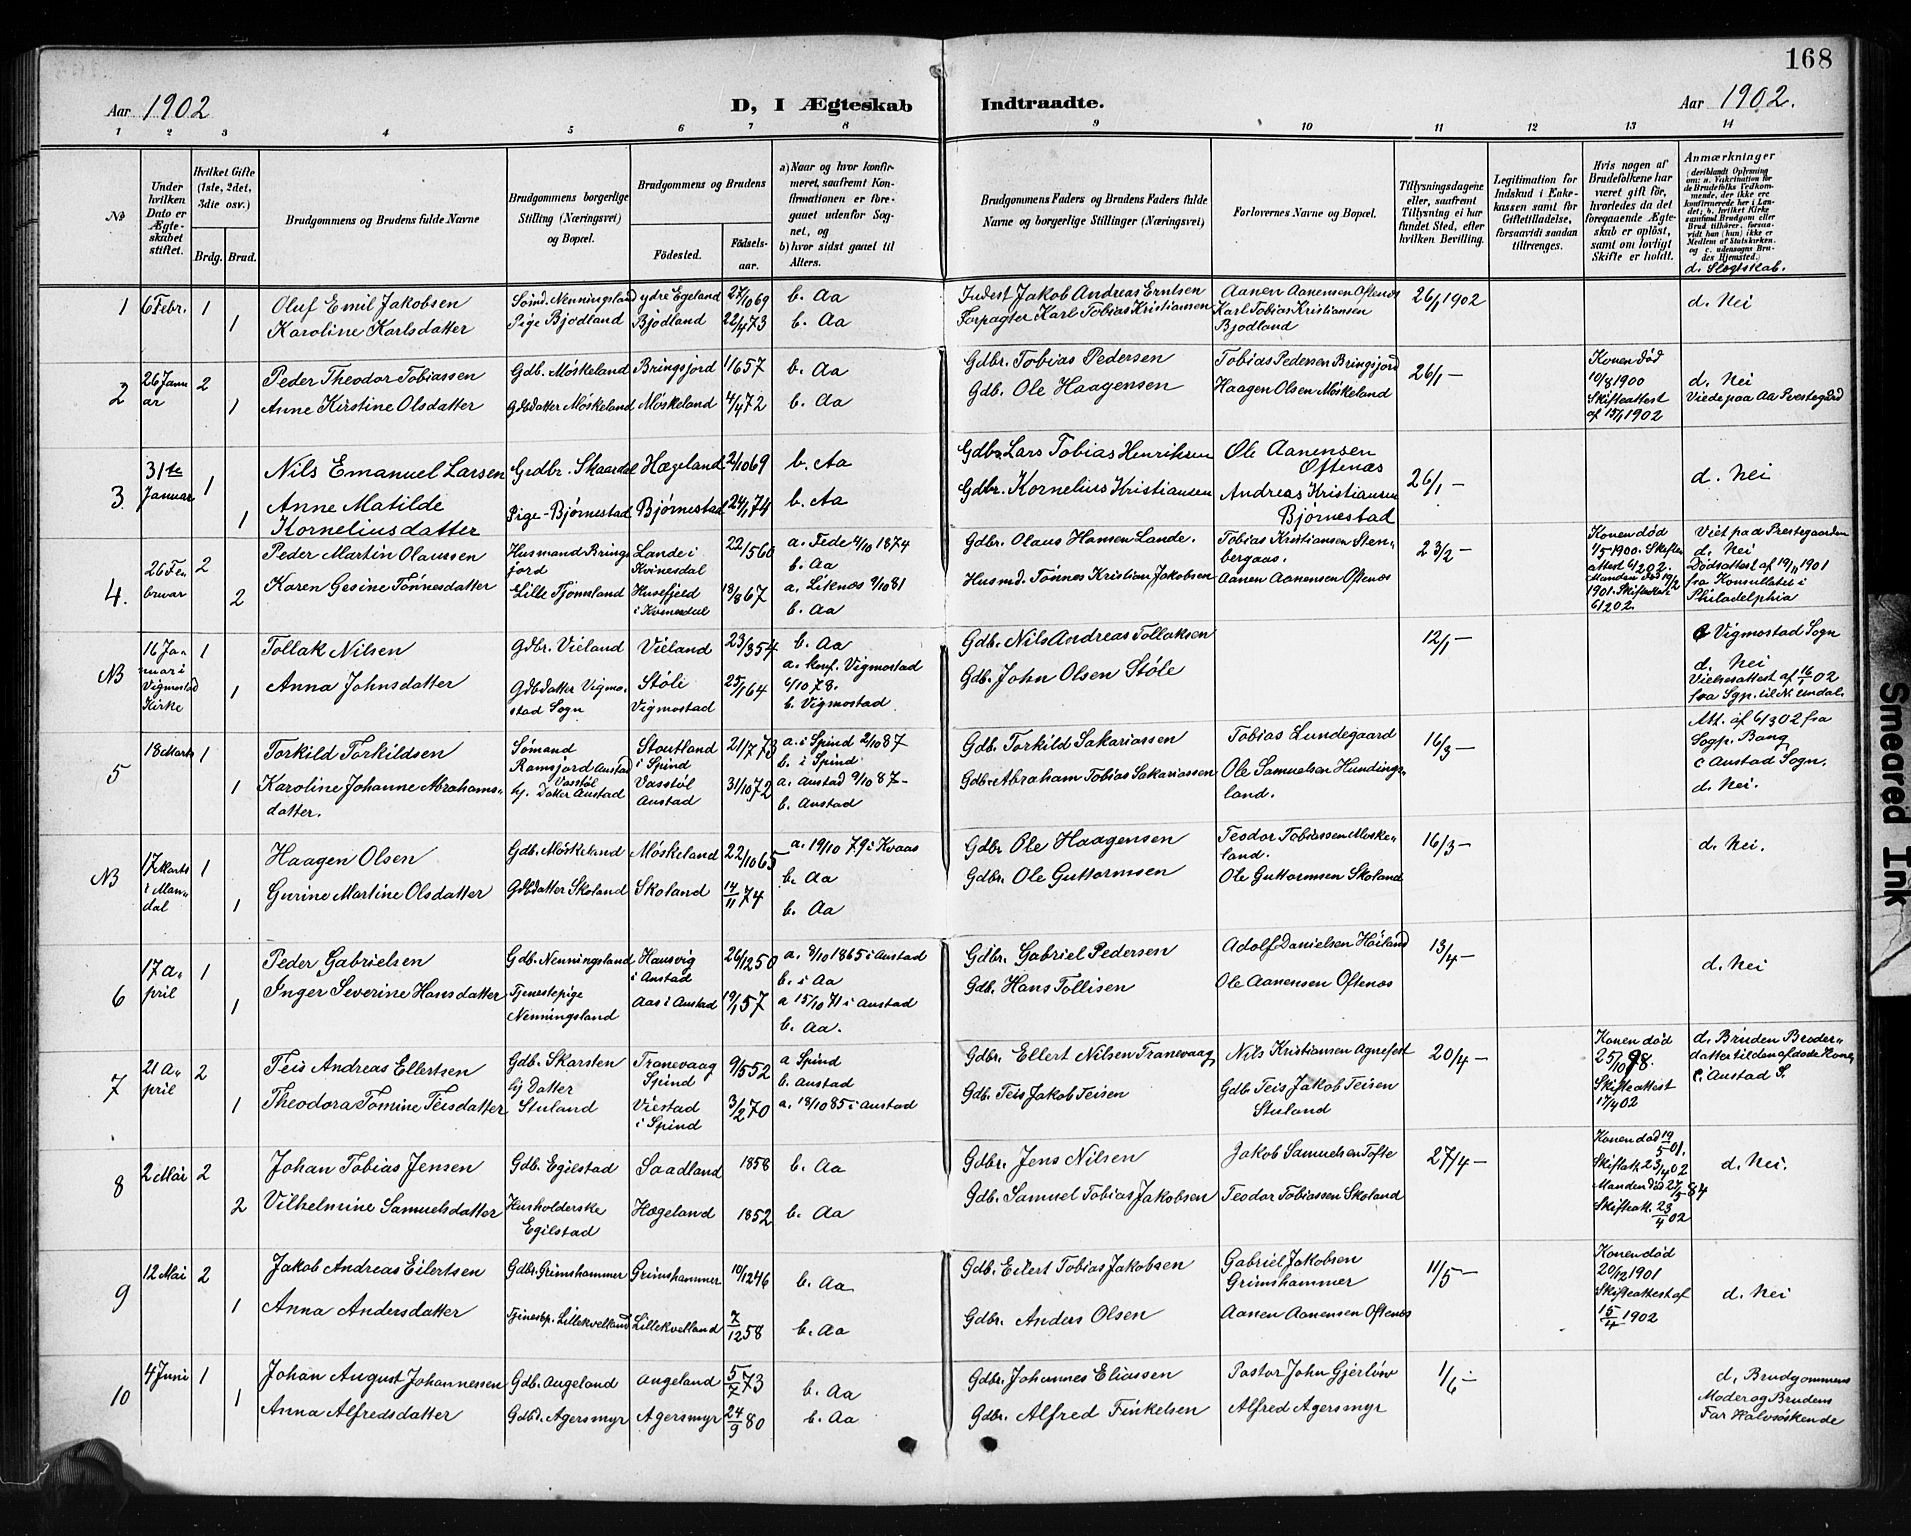 168
Aar 1902
D, I Ægteskab Indtraadte.
Aar 1902.
1 2 3 4 5 6 7 8 9 10 11 12 13 14
No
Under hvilken Dato er Ægteskabet stiftet.
Hvilket Gifte (1ste, 2det, 3die osv.)
Brdg. Brud.
Brudgommens og Brudens fulde Navne
Brudgommens borgerlige Stilling (Næringsvei) og Bopæl.
Brudgommens og Brudens
Fødested.
Fødselsaar.
a) Naar og hvor konfirmeret, saafremt Konfirmationen er foregaaet udenfor Sognet, og
b) hvor sidst gaaet til Alters.
Brudgommens Faders og Brudens Faders fulde Navne og borgerlige Stillinger (Næringsvei)
Forlovernes Navne og Bopæl.
Tillysningsdagene eller, saafremt Tillysning ei har fundet Sted, efter hvilken Bevilling.
Legitimation for Indskud i Enkekassen samt for Giftetilladelse, forsaavidt saadan tiltrænges.
Hvis nogen af Brudefolkene har været gift før, hvorledes da det foregaaende Ægteskab er opløst, samt om lovligt Skifte er holdt.
Anmærkninger
(deriblandt Oplysning om: a. Vakcination for de Brudefolks Vedkommende, der ikke ere konfirmerede her i Landet; b. hvilket Kirkesamfund Brudgom eller Brud tilhører, forsaavidt han (hun) ikke er Medlem af Statskirken, og c. udensogns Brudes Hjemsted.)
d. Slegtskab.
1 6 Febr. 1 Oluf Emil Jakobsen Sømd. Nenningsland ydre Egeland 27/10 69 b. Aa Indest Jakob Andreas Erntsen Aanen Aanensen Oftenæs 26/1 1902 d. Nei
1 Karoline Karlsdatter Pige Bjodland Bjodland 22/4 73 b. Aa Forpagter Karl Tobias Kristiansen Karl Tobias Kristiansen Bjodland
2 26 Januar 2 Peder Theodor Tobiassen Gdb. Møskeland Bringsjord 1/6 57 b. Aa Gdbr. Tobias Pedersen Tobias Pedersen Bringsjord 26/1 – Konen død 10/8 1900 Skifteattest af 15/1 1902 d. Nei Viede paa Aa Prestegård
1 Anne Kirstine Olsdatter Gdbdatter Møskeland Møskeland 4/4 72 b. Aa Gdb. Ole Haagensen Haagen Olsen Møskeland
3 31te Januar 1 Nils Emanuel Larsen Grdbr. Skaardal Hægeland 2/10 69 b. Aa Gdbr Lars Tobias Henriksen Ole Aanensen Oftenæs 26/1 – d. Nei
1 Anne Matilde Korneliusdatter Pige – Bjørnestad Bjørnestad 24/1 74 b. Aa Gdbr. Kornelius Kristiansen Andreas Kristiansen Bjørnestad
4. 26 Februar 2 Peder Martin Olaussen Husmand Bringsjord Lande i Kvinesdal 22/5 60 a. Fede 4/10 1874 b. Aa Gdbr. Olaus Hansen Lande. Tobias Kristiansen Stenbergaas. 23/2 – Konen død 1/5 1900. Skifteattest 6/2 02. Manden død 19/2 1901. Skifteatt. 6/1 02. Viet paa Prestegaarden d. Nei Dødsattest af 19/11 1901 fra Konsulatet i Philadelphia
2 Karen Gesine Tønnesdatter Lille Tjømland Husefjeld i Kvinesdal 18/8 67 a. Liknes 9/10 81 b. Aa Husmd. Tønnes Kristian Jakobsen Aanen Aanensen Oftenæs
NB 16 Januar i Vigmostad Kirke 1 Tollak Nilsen Gdbr. Vieland Vieland 23/3 54 b. Aa Gdb. Nils Andreas Tollaksen 12/1 – c Vigmostad Sogn d. Nei Vielsesattest af 16/1 02 fra Sgp. til N. Undal.
1 Anna Johnsdatter Gdbdatter Vigmostad Sogn Støle Vigmostad 25/1 64 a. konf. Vigmostad 6/10 78. b. Vigmostad Gdb. John Olsen Støle
5 18 Marts 1 Torkild Torkildsen Sømand Ramsjord Austad Stoutland i Spind 21/7 73 a. i Spind 2/10 87 b. i Spind Gdb. Torkild Sakariassen Tobias Lundegaard 16/3 – Att. af 6/3 02 fra Sogp. Bang c Austad Sogn. d. Nei.
1 Karoline Johanne Abrahamsdatter. hj. Datter Vasstøl Austad Vasstøl Austad 31/10 72 a. Austad 9/10 87 – b. Austad Gdbr. Abraham Tobias Sakariassen Ole Samuelsen Hundingsland.
NB 17 Marts i Mandal 1 Haagen Olsen Gdb. Møskeland Møskeland 22/10 65 a. 19/10 79 i Kvaas b. Aa Gdbr Ole Haagensen Teodor Tobiassen Moskeland. 16/3 – d. Nei.
1 Gurine Martine Olsdatter Gdbdatter Skoland Skoland 14/11 74 b. Aa Gdbr. Ole Guttormsen Ole Guttormsen Skoland
6 17 April 1 Peder Gabrielsen Gdb. Nenningsland Hausvig i Austad 26/12 50 a. 8/10 1865 i Austad b. i Aa Gdbr. Gabriel Pedersen Adolf Danielsen Høiland 13/4 – d. Nei
1 Inger Severine Hansdatter Tjenestepige Nenningsland Aas i Austad 19/1 57 a 15/10 71 i Austad b. Aa. Gdb. Hans Tollisen Ole Aanensen Oftenæs
7 21 April 2 Teis Andreas Ellertsen Gdb. Skarsten Tranevaag Spind 9/5 52 a Spind b. Austad Gdbr. Ellert Nilsen Tranevaag Nils Kristiansen Agnefest 20/4 – Konen død 25/10 98. Skifteattest 17/4 02 d. Bruden Broderdatter til den afdøde Kone c. Austad S.
1 Theodora Tomine Teisdatter hj Datter Stuland Viestad i Spind 3/2 70 a. 18/10 85 i Austad Gdb. Teis Jakob Teisen Gdb Teis Jakob Teisen Stuland
8 2 Mai 2 Johan Tobias Jensen Gdb. Egilstad Saadland 1858 b. Aa Gdbr. Jens Nilsen Jakob Samuelsen Tofte 27/4 – Konen død 19/5 01. Skifteatt. 23/4 02 Manden død 27/9 84 Skifteatt. 23/4 02 d. Nei.
2 Vilhelmine Samuelsdatter Husholderske Egilstad Hægeland 1852 b. Aa Gdb. Samuel Tobias Jakobsen Teodor Tobiassen Skoland
9 12 Mai 2 Jakob Andreas Eilertsen Gdbr. Grimshammer Grimshammer 10/12 46 b. Aa Gdb. Eilert Tobias Jakobsen Gabriel Jakobsen Grimshammer 11/5 – Konen død 20/12 1901 Skifteattest af 15/4 1902 d. Nei
1 Anna Andersdatter Tjenestep. Lillekvelland Lillekvelland 7/12 58 b. Aa Gdbr. Anders Olsen Aanen Aanensen Oftenæs
10 4 Juni 1 Johan August Johannessen Gdb. Augeland Augeland 5/7 73 b. Aa Gdbr. Johannes Eliassen Pastor John Gjerløw 1/6 – d. Brudgommens Moder og Brudens Far Halvsøskende
1 Anna Alfredsdatter Gdbd. Agersmyr Agersmyr 24/9 80 b. Aa Gdbr. Alfred Finkelsen Alfred Agersmyr
Smeared Ink